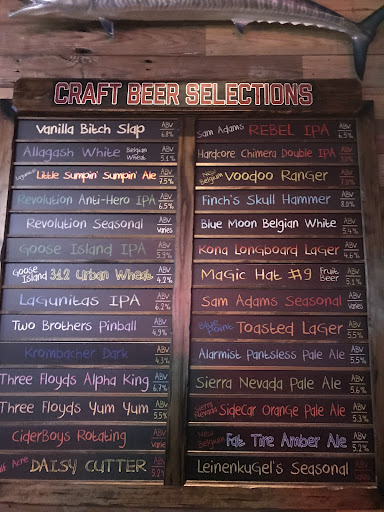 CRAFT BEER SELECTIONS
Vanilla Bitch Slap ABV 6.8%
Allagash White Belgian Wheat ABV 5.1%
Little Sumpin' Sumpin' Ale ABV 7.5%
Revolution Anti-Hero IPA ABV 6.5%
Revolution Seasonal ABV varies
Goose Island IPA ABV 5.9%
Goose Island 312 Urban Wheat ABV 4.2%
Lagunitas IPA ABV 6.2%
Two Brothers Pinball ABV 4.9%
Krombacher Dark ABV 4.3%
Three Floyds Alpha King ABV 6.7%
Three Floyds Yum Yum ABV 5.5%
CiderBoys Rotating ABV varies
Half Acre DAISY CUTTER ABV 5.2%
Sam Adams REBEL IPA ABV 6.5%
Hardcore Chimera Double IPA ABV
New Belgium Voodoo Ranger ABV 7.0%
Finch's Skull Hammer ABV 8.0%
Blue Moon Belgian White ABV 5.4%
Kona Longboard Lager ABV 4.6%
Magic Hat #9 Fruit Beer ABV 5.1%
Sam Adams Seasonal ABV varies
Blue Point Toasted Lager ABV 5.5%
Alarmist Pantsless Pale Ale ABV 5.5%
Sierra Nevada Pale Ale ABV 5.6%
Sierra Nevada SideCar Orange Pale Ale ABV 5.3%
New Belgium Fat Tire Amber Ale ABV 5.2%
Leinenkugel's Seasonal ABV